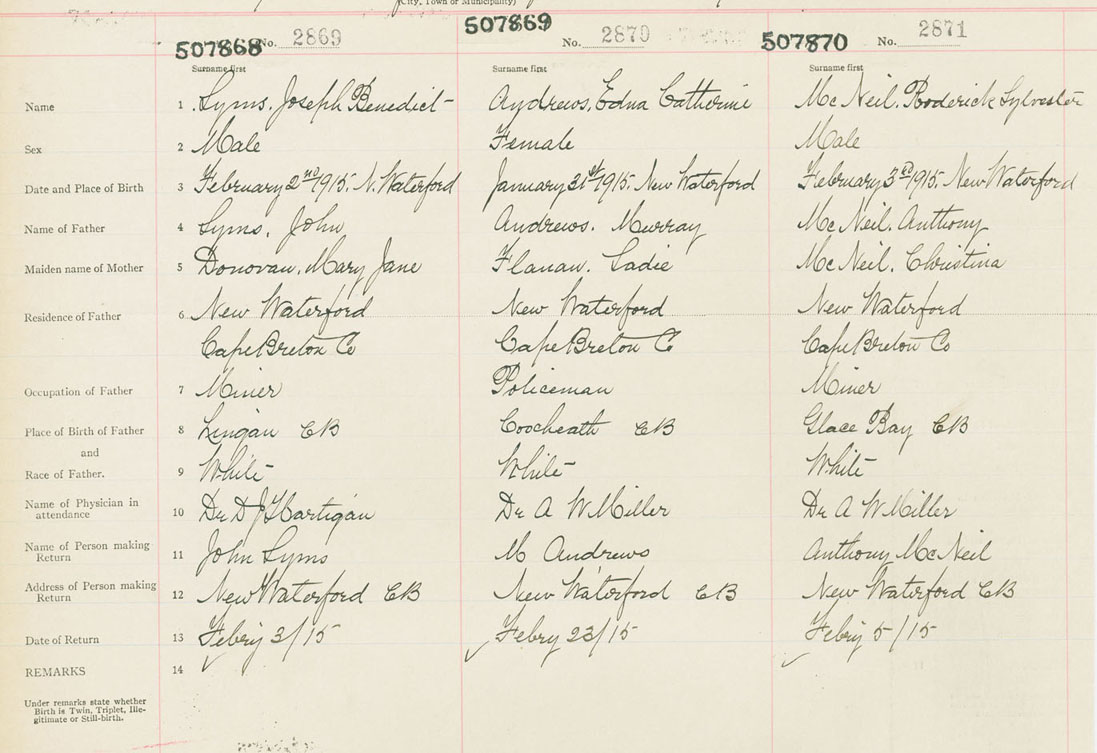 (City, Town or Municipality)
507868 No. 2869 507869 No. 2870 507870 No. 2871
Surname first Surname first Surname first
Name 1 Lyms, Joseph Benedict Andrews, Edna Catherine Mc Neil, Roderick Sylvester
Sex 2 Male Female Male
Date and Place of Birth 3 February 2nd 1915. N. Waterford January 31st 1915. New Waterford February 3rd 1915. New Waterford
Name of Father 4 Lyms, John Andrews, Murray Mc Neil, Anthony
Maiden name of Mother 5 Donovan, Mary Jane Flanan, Sadie Mc Neil, Christina
Residence of Father 6 New Waterford New Waterford New Waterford
Cape Breton Co Cape Breton Co Cape Breton Co
Occupation of Father 7 Miner Policeman Miner
Place of Birth of Father 8 Lingan CB Coocheath CB Glace Bay CB
and
Race of Father. 9 White White White
Name of Physician in
attendance 10 Dr D J Hartigan Dr A W Miller Dr A W Miller
Name of Person making
Return 11 John Lyms M Andrews Anthony McNeil
Address of Person making
Return 12 New Waterford CB New Waterford CB New Waterford CB
Date of Return 13 Febriy 3/15 Febry 23/15 Febriy 5/15
REMARKS 14
Under remarks state whether
Birth is Twin, Triplet, Ille-
gitimate or Still-birth.